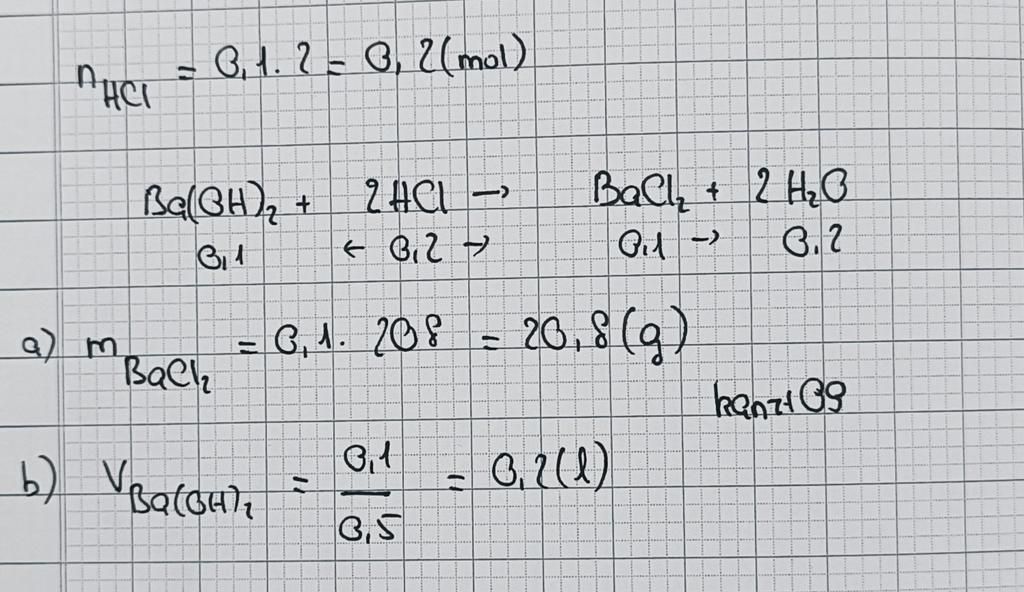 n_HCl = 0,1. 2 = 0,2 (mol)
Ba(OH)₂ + 2HCl → BaCl₂ + 2H₂O
0,1 ← 0,2 → 0,1 → 0,2
a) m_BaCl₂ = 0,1. 208 = 20,8 (g)
kanz109
b) V_Ba(OH)₂ = 0,1/0,5 = 0,2 (l)